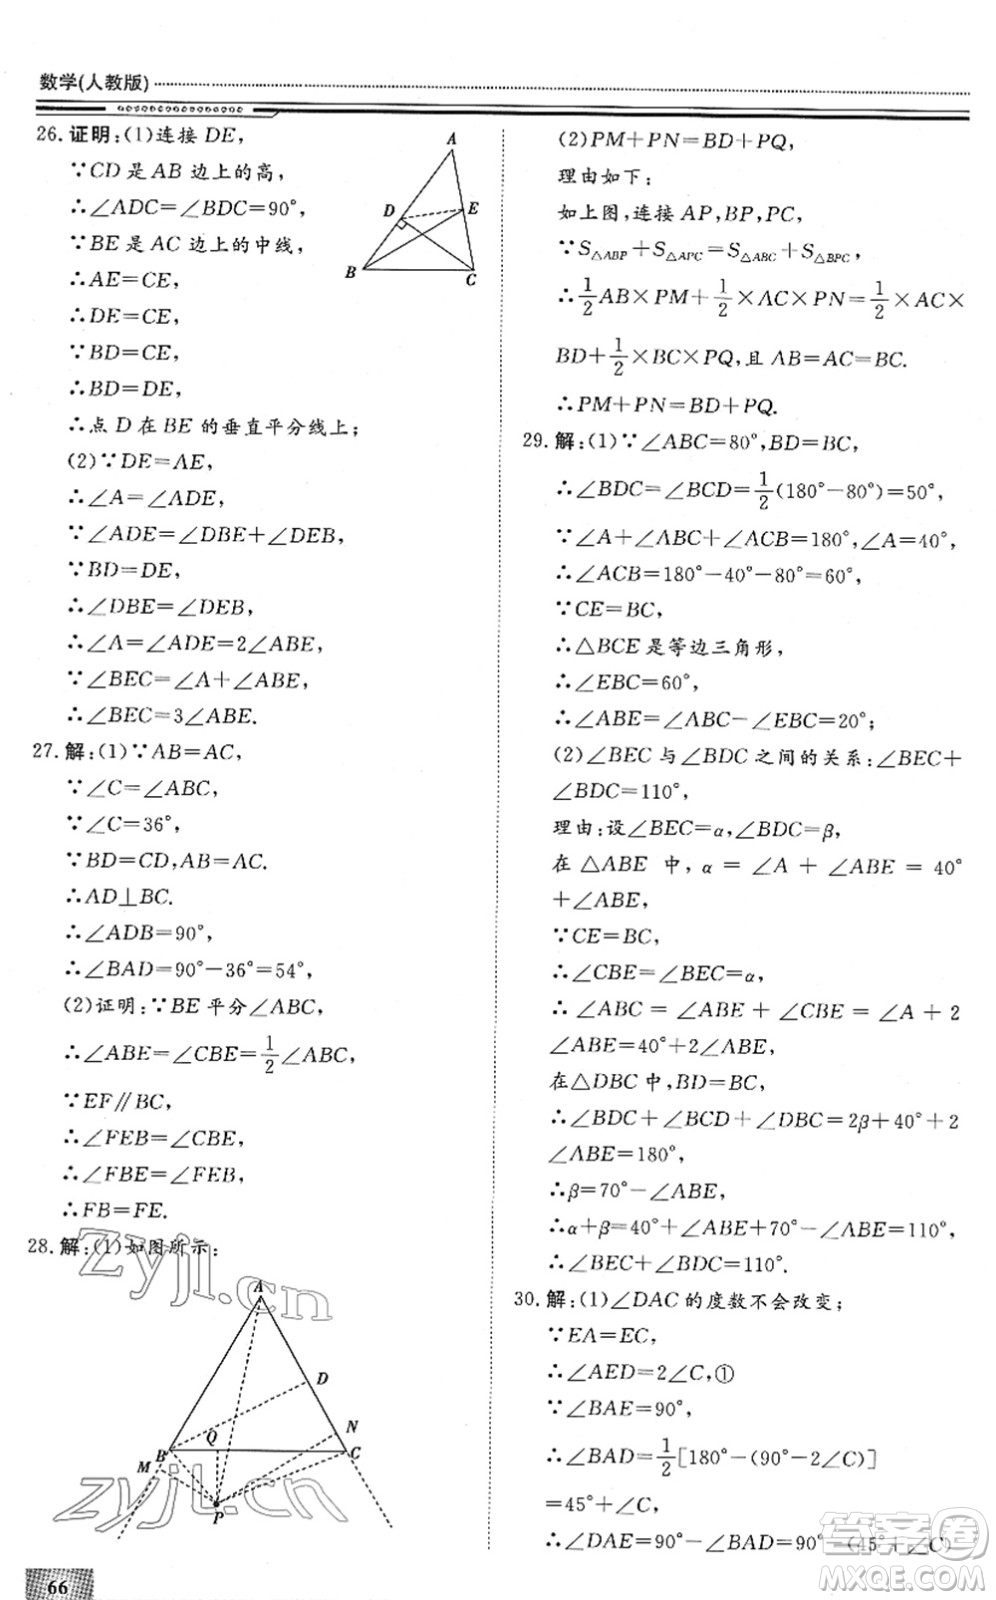 数学(人教版)
26. 证明:(1)连接 DE,
∵CD 是 AB 边上的高,
∴∠ADC=∠BDC=90°,
∵BE 是 AC 边上的中线,
∴AE=CE,
∴DE=CE,
∵BD=CE,
∴BD=DE,
∴点 D 在 BE 的垂直平分线上;
(2)∵DE=AE,
∴∠A=∠ADE,
∵∠ADE=∠DBE+∠DEB,
∵BD=DE,
∴∠DBE=∠DEB,
∴∠A=∠ADE=2∠ABE,
∵∠BEC=∠A+∠ABE,
∴∠BEC=3∠ABE.
A
D
E
B
C
27. 解:(1)∵AB=AC,
∵∠C=∠ABC,
∵∠C=36°,
∵BD=CD,AB=AC.
∴AD⊥BC.
∴∠ADB=90°,
∴∠BAD=90°-36°=54°,
(2)证明:∵BE 平分∠ABC,
∴∠ABE=∠CBE=1/2∠ABC,
∵EF∥BC,
∴∠FEB=∠CBE,
∴∠FBE=∠FEB,
∴FB=FE.
28. 解:(1)如图所示:
A
D
N
B
Q
C
M
P
66
(2)PM+PN=BD+PQ,
理由如下:
如上图,连接 AP,BP,PC,
∵S△ABP+S△APC=S△ABC+S△BPC,
∴1/2AB×PM+1/2×AC×PN=1/2×AC×
BD+1/2×BC×PQ,且 AB=AC=BC.
∴PM+PN=BD+PQ.
29. 解:(1)∵∠ABC=80°,BD=BC,
∴∠BDC=∠BCD=1/2(180°-80°)=50°,
∵∠A+∠ABC+∠ACB=180°,∠A=40°,
∴∠ACB=180°-40°-80°=60°,
∵CE=BC,
∴△BCE 是等边三角形,
∴∠EBC=60°,
∴∠ABE=∠ABC-∠EBC=20°;
(2)∠BEC 与∠BDC 之间的关系:∠BEC+
∠BDC=110°,
理由:设∠BEC=α,∠BDC=β,
在 △ABE 中, α = ∠A + ∠ABE = 40°
+∠ABE,
∵CE=BC,
∴∠CBE=∠BEC=α,
∴∠ABC = ∠ABE + ∠CBE = ∠A + 2
∠ABE=40°+2∠ABE,
在△DBC 中,BD=BC,
∴∠BDC+∠BCD+∠DBC=2β+40°+2
∠ABE=180°,
∴β=70°-∠ABE,
∴α+β=40°+∠ABE+70°-∠ABE=110°,
∴∠BEC+∠BDC=110°.
30. 解:(1)∠DAC 的度数不会改变;
∵EA=EC,
∴∠AED=2∠C,①
∵∠BAE=90°,
∴∠BAD=1/2[180°-(90°-2∠C)]
=45°+∠C,
∴∠DAE=90°-∠BAD=90°-(45°+∠C)
zyjl.cn
zyjl.cn
答案圈
MXQE.COM